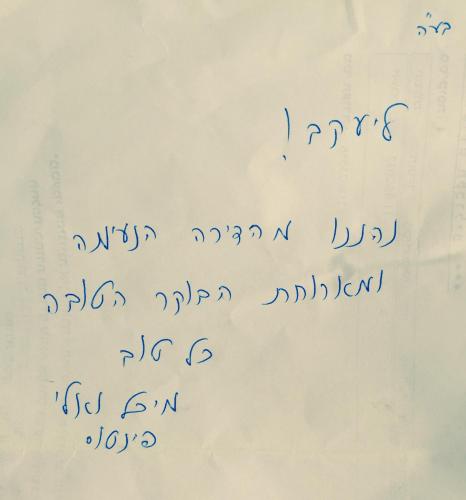 בע"ה
ליעקב!
נהננו מהדירה הנעימה
ומארוחת הבוקר הטובה
כל טוב
מיכל ואלי
פינטוס